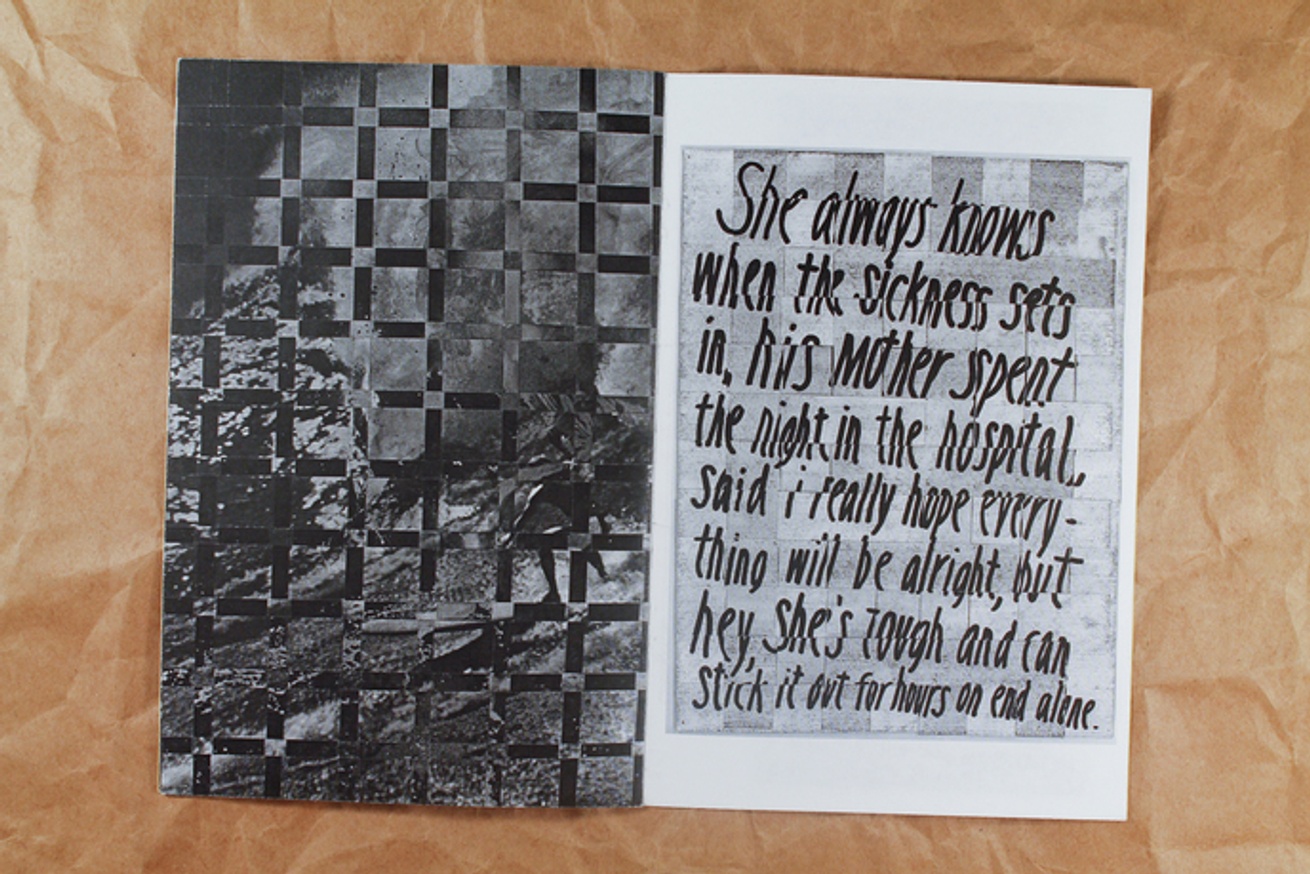 She always knows
when the sickness sets
in, his mother spent
the night in the hospital,
said i really hope every-
thing will be alright, but
hey, She's tough and can
stick it out for hours on end alone.